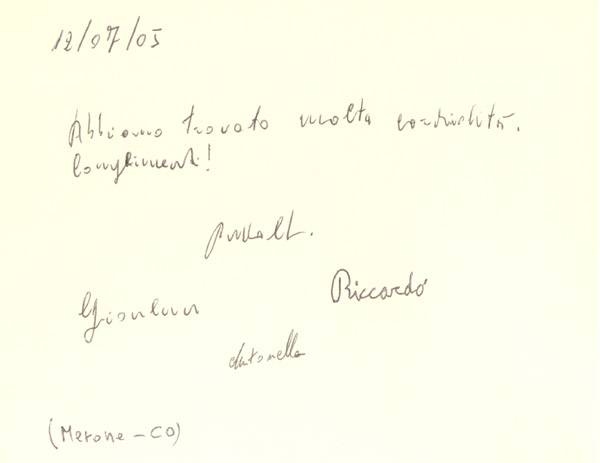 12/07/05
Abbiamo trovato molta cordialità.
Complimenti!
Riccardo
Antonella
(Merone - CO)